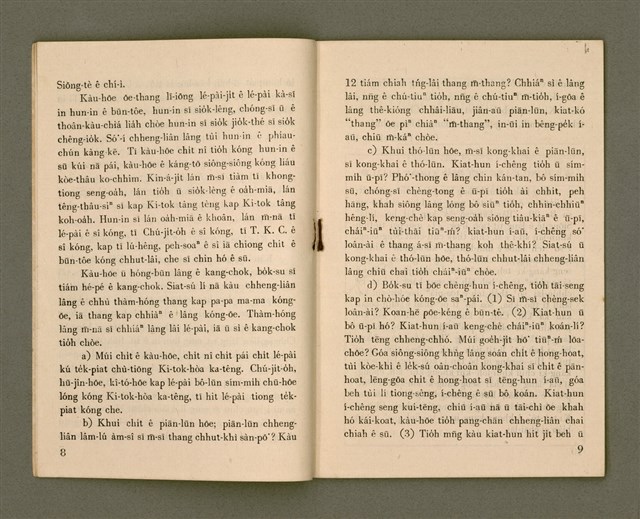 Siōng-tè ê chí-ì.
Kàu-hōe ōe-thang lī-iōng lé-pài-ji̍t ê lé-pài kà-sī
in hun-in ê būn-tôe, hun-in sī sio̍k-lêng, chóng-sī ū ê
thoân-kàu-chiá lia̍h chòe hun-in sī sio̍k jio̍k-thé sī sio̍k
chêng-io̍k. Só͘-í chheng-liân lâng tùi hun-in ê phiau-
chún káng-kē. Tī kàu-hōe chit nî tio̍h kóng hun-in ê
sū kúi nā pái, kàu-hōe ê káng-tô siông-siông kóng liáu
kòe-thâu ko-chhim. Kin-á-ji̍t lán m̄-sī tiàm tī khong-
tiong seng-oa̍h, lán tio̍h ū sio̍k-lêng ê oa̍h-miā, lán
têng-thâu-siⁿ sī kap Ki-tok tâng têng kap Ki-tok tâng
koh-oa̍h. Hun-in sī lán oa̍h-miā ê khoân, lán m̄-nā tī
lé-pài ê sî kóng, tī Chú-ji̍t-o̍h ê sî kóng, tī T. K. C. ê
sî kóng, kap tī lú-hêng, peh-soaⁿ ê sî iā chiong chit ê
būn-tôe kóng chhut-lâi, che sī chin hó ê sū.
Kàu-hōe ū hông-būn lâng ê kang-chok, bo̍k-su sī
tiám hé-pé ê kang-chok. Siat-sú lí nā kàu chheng-liân
lâng ê chhù thàm-hóng thang kap pa-pa ma-ma kóng-
ōe, iā thang kap chhiàⁿ ê lâng kóng-ōe. Thàm-hóng
lâng m̄-nā sī chhiáⁿ lâng lâi lé-pài, iā ū sì ê kang-chok
tio̍h chòe.
a) Múi chit ê kàu-hōe, chit nî chit pái chit lé-pài
kú te̍k-piat chù-tiōng Ki-tok-hòa ka-têng. Chú-ji̍t-o̍h,
hū-jîn-hōe, kî-tó-hōe kap lé-pài bô-lūn sím-mih chū-hōe
lóng kóng Ki-tok-hòa ka-têng, tī hit lé-pài tiong te̍k-
piat kóng che.
b) Khui chit ê piān-lūn hōe; piān-lūn chheng-
liân lâm-lú àm-sî sī m̄-sī thang chhut-khì sàn-pō͘? Kàu
8
12 tiám chiah tńg-lâi thang m̄-thang? Chhiáⁿ sì ê lâng
lâi, nn̄g ê chú-tiuⁿ tio̍h, nn̄g ê chú-tiuⁿ m̄-tio̍h, í-gōa ê
lâng thê-kiòng chhâi-liāu, jiân-āu piān-lūn, kiat-kó
“thang” ōe pìⁿ chiâⁿ “m̄-thang”, in-ūi in bèng-pe̍k í-
āu, chiū m̄-káⁿ chòe.
c) Khui thó-lūn hōe, m̄-sī kong-khai ê piān-lūn,
sī kong-khai ê thó-lūn. Kiat-hun í-chêng tio̍h ū sím-
mih ū-pī? Phó͘-thong ê lâng chin kán-tan, bô sím-mih
sū, chóng-sī chèng-tong ê ū-pī tio̍h ài chhit, peh
hāng, khah siông lâng lóng bô siūⁿ tio̍h, chhin-chhiūⁿ
hêng-lí, keng-chè kap seng-oa̍h siōng tiâu-kiāⁿ ê ū-pī,
cháiⁿ-iūⁿ tùi-thāi tiaⁿ-m̄? kiat-hun í-āu, í-chêng só͘
loân-ài ê thang á-sī m̄-thang koh thê-khí? Siat-sú ū
kong-khai ê thó-lūn hōe, thó-lūn chhut-lâi chheng-liân
lâng chiū chai tio̍h cháiⁿ-iūⁿ chòe.
d) Bo̍k-su tī bōe chêng-hun í-chêng, tio̍h tāi-seng
kap in chò-hóe kóng-ōe saⁿ-pái. (1) Sī m̄-sī chèng-sek
loân-ài? Koan-hē pōe-kēng ê būn-tê. (2) Kiat-hun ū
bô ū-pī hó? Kiat-hun í-āu keng-chè cháiⁿ-iūⁿ koán-lí?
Tio̍h tēng chheng-chhó. Múi goe̍h-ji̍t hō͘ tiuⁿ-ḿ lōa-
chōe? Góa siông-siông khǹg lâng soàn chit ê hong-hoat,
tùi kòe-khì ê le̍k-sú oân-choân kong-khai sī chit ê pān-
hoat, lēng-gōa chit ê hong-hoat sī têng-hun í-āu, góa
beh tùi lí tiong-sêng, í-chêng ê sū bô koán. Kiat-hun
í-chêng seng kui-tēng, chiū í-āu nā ū tāi-chì ōe khah
hó kái-koat, kàu-hōe tio̍h pang-chān chheng-liân chai
chiah ê sū. (3) Tio̍h mn̄g kàu kiat-hun hit ji̍t beh ū
9